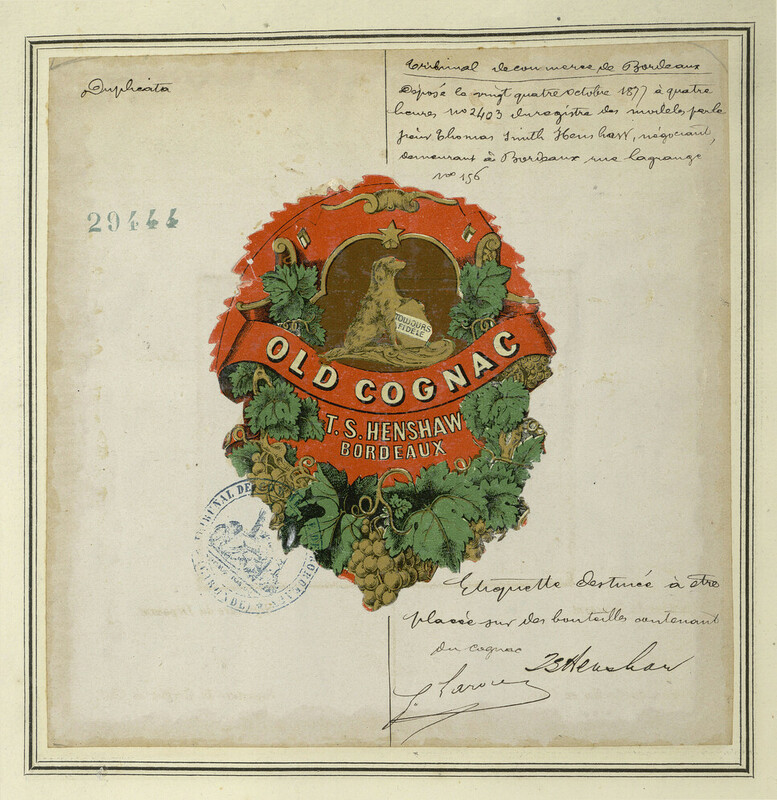 Duplicata
Tribunal de commerce de Bordeaux
Déposé le vingt quatre octobre 1877 à quatre
heures no 2403 du registre des modeles par le
sieur Thomas Smith Henshaw, négociant,
demeurant à Bordeaux rue lagrange
no 156
29444
TOUJOURS
FIDELE
OLD COGNAC
T. S. HENSHAW
BORDEAUX
TRIBUNAL DE
(GIRONDE)
Etiquette destinée à etre
placée sur des bouteilles contenant
du cognac
TSHenshaw